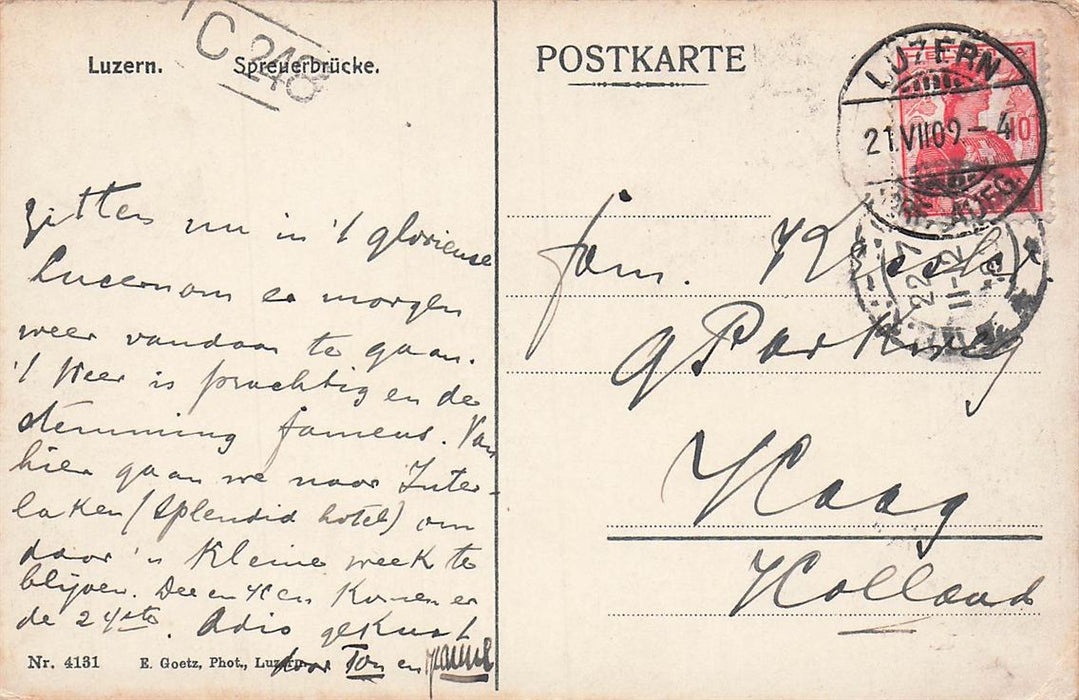 C 248
Luzern. Spreuerbrücke.
POSTKARTE
LUZERN
21.VII09-4
BRF. AUFG.
10
22.7
11-12
Zitten nu in 't glorieuse
Lucern om er morgen
weer vandaan te gaan.
't Weer is prachtig en de
stemming fameus. Van
hier gaan we naar Inter-
laken (Splendid hotel) om
daar 'n kleine week te
blijven. Dee en komen er
de 24ste. Adio gekust
door Ton en
Fam.
9 Parkweg
Haag
Holland
Nr. 4131 E. Goetz, Phot., Luzern.